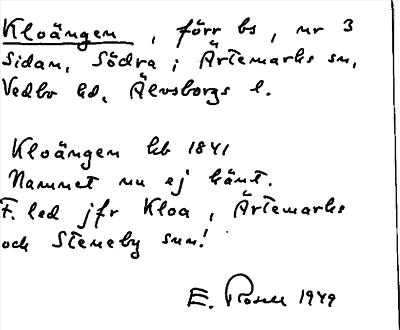 Kloängen, förr bs, nr 3
Sidan, Södra i Ärtemarks sn,
Vedbo hd, Älvsborgs l.
Kloängen hb 1841
Namnet nu ej känt.
F. led jfr Kloa, Ärtemarks
och Steneby snr!
E. Rosell 1949